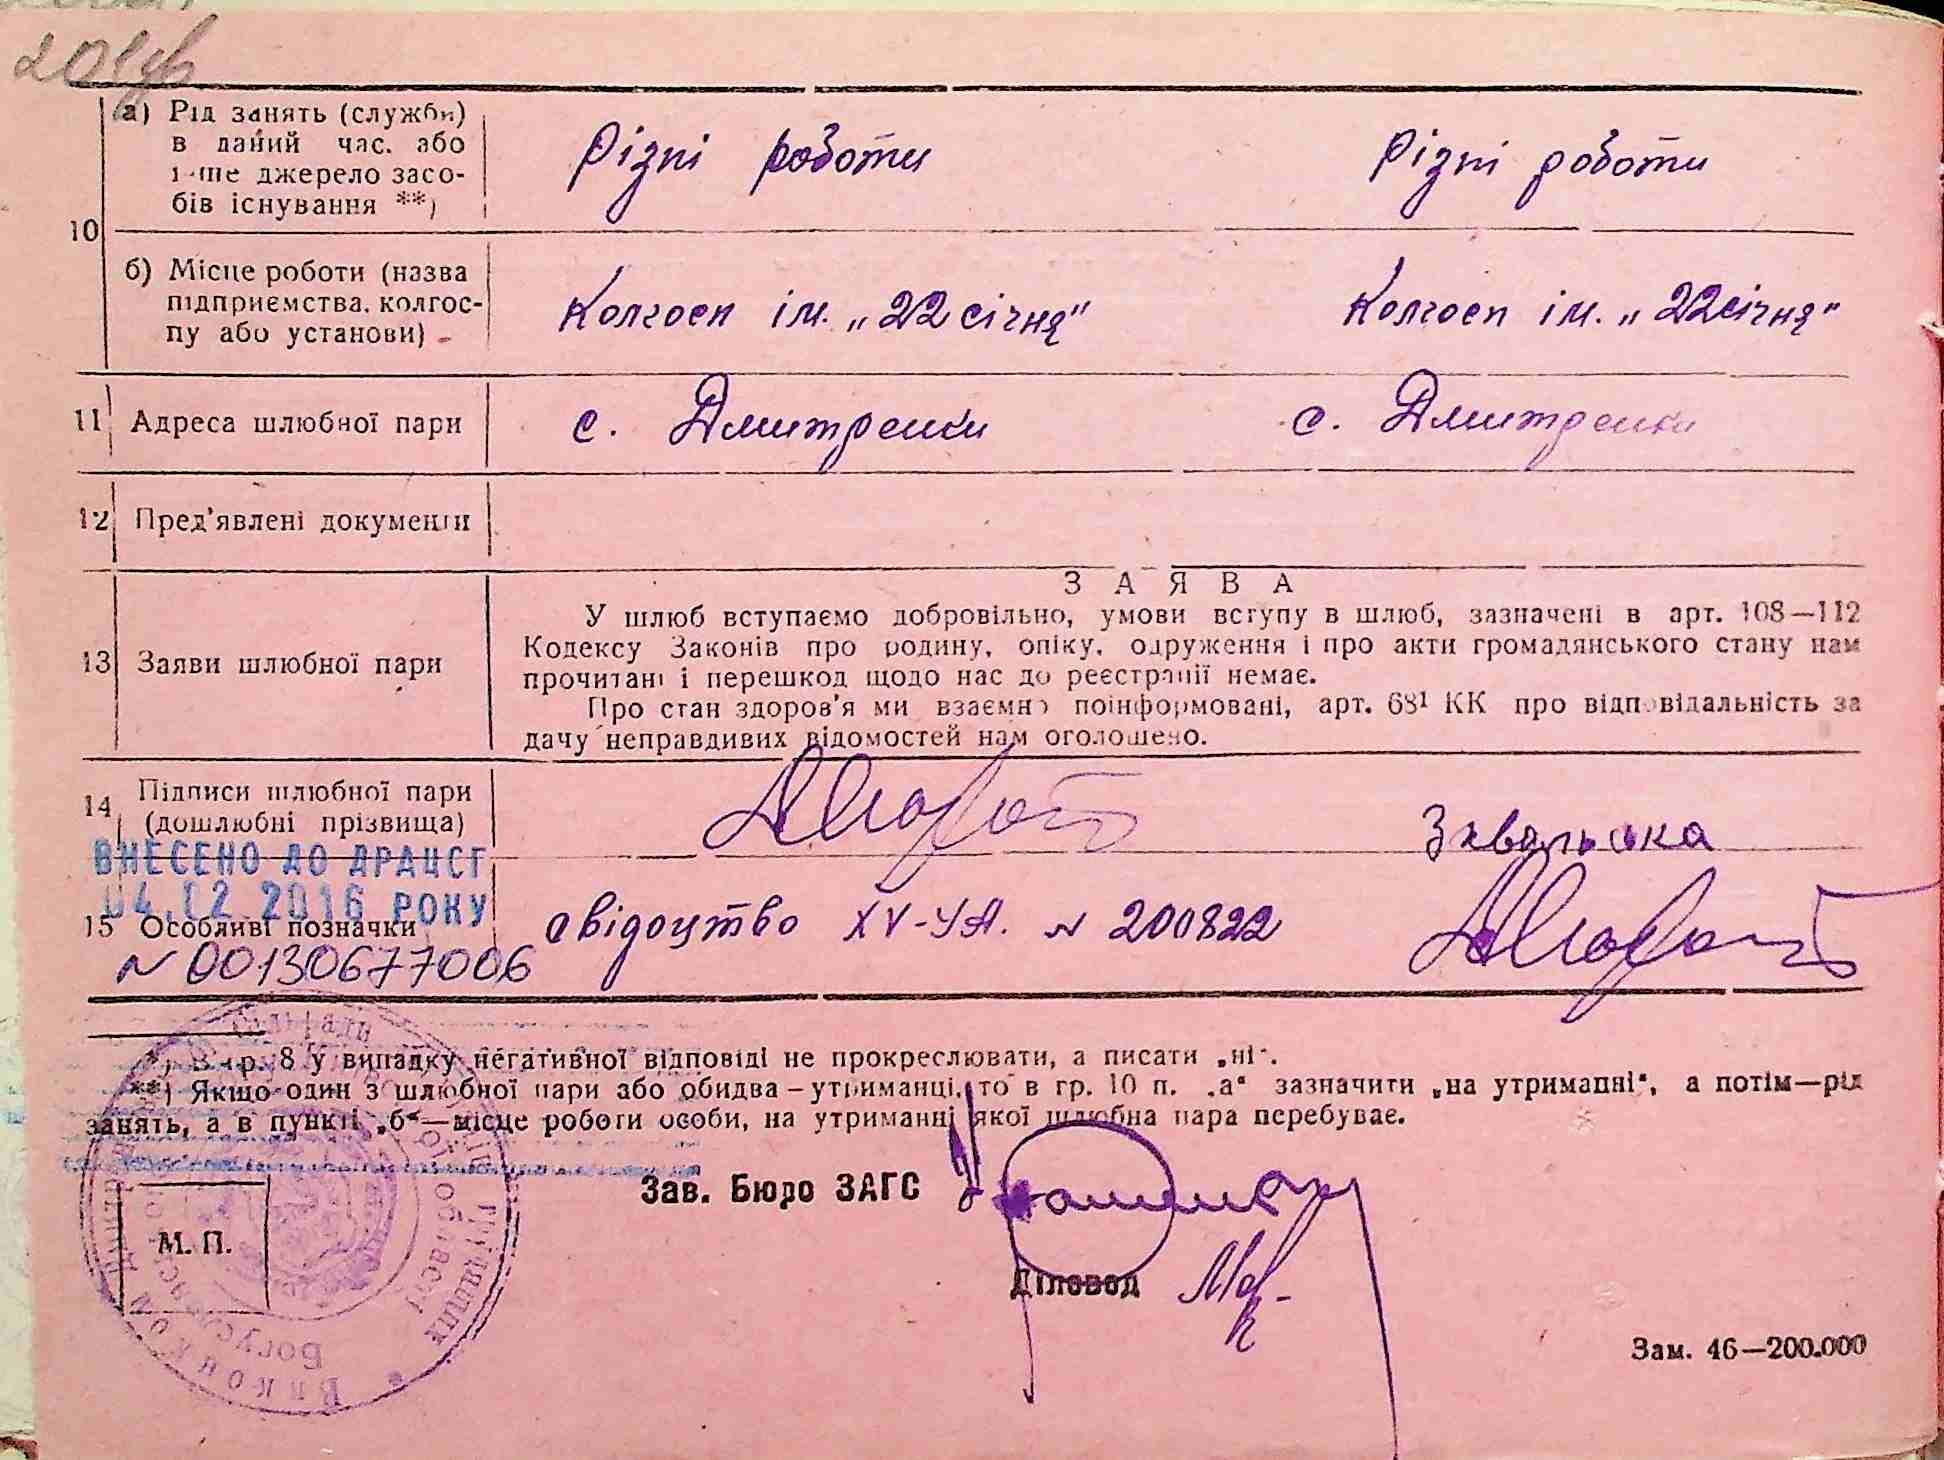 а) Рід занять (служби) в даний час, або інше джерело засобів існування **)
Різні роботи
Різні роботи
10
б) Місце роботи (назва підприємства, колгоспу або установи)
Колгосп ім. „22 січня"
Колгосп ім. „22 січня"
11 Адреса шлюбної пари
с. Дмитренки
с. Дмитренки
12 Пред'явлені документи
13 Заяви шлюбної пари
ЗАЯВА
У шлюб вступаємо добровільно, умови вступу в шлюб, зазначені в арт. 108—112
Кодексу Законів про родину, опіку, одруження і про акти громадянського стану нам
прочитані і перешкод щодо нас до реєстрації немає.
Про стан здоров'я ми взаємно поінформовані, арт. 68¹ КК про відповідальність за
дачу неправдивих відомостей нам оголошено.
14 Підписи шлюбної пари
(дошлюбні прізвища)
ВНЕСЕНО ДО ДРАЦСГ
04.02.2016 РОКУ
15 Особливі позначки
свідоцтво XV-УА. № 200822
№ 00130677006
*) В гр. 8 у випадку негативної відповіді не прокреслювати, а писати „ні".
**) Якщо один з шлюбної пари або обидва – утриманці, то в гр. 10 п. „а" зазначити „на утриманні", а потім—рід
занять, а в пункті „б"—місце роботи особи, на утриманні якої шлюбна пара перебуває.
Зав. Бюро ЗАГС
М. П.
Діловод
Зам. 46—200.000